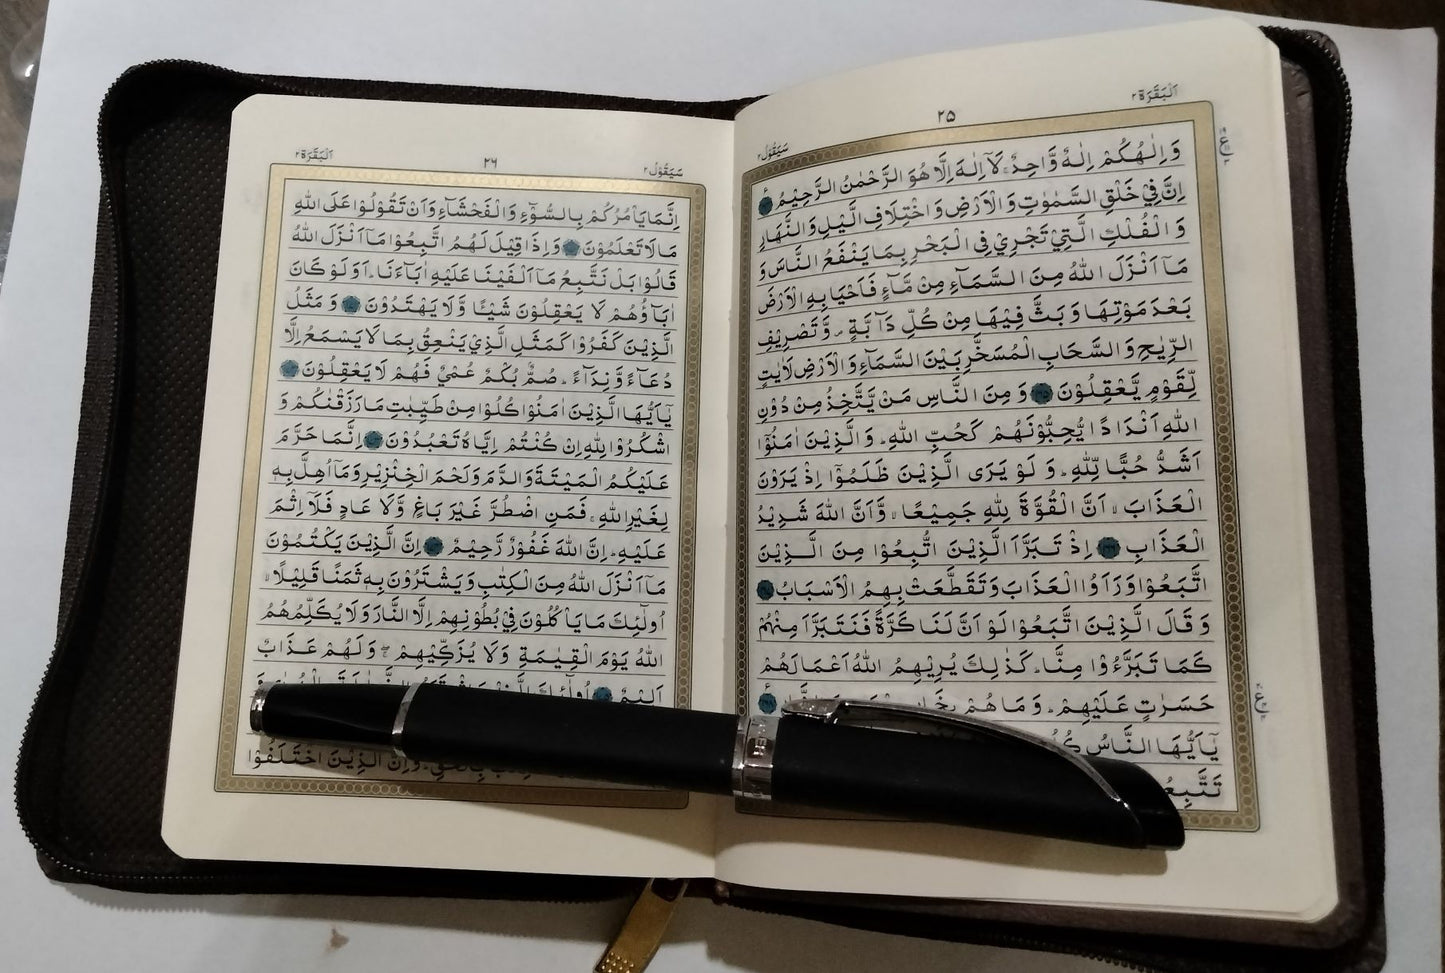 اَلْبَقَرَة ٢
٢٥
سَيَقُوْلُ ٢
وَ اِلٰهُكُمْ اِلٰهٌ وَّاحِدٌ ۚ لَآ اِلٰهَ اِلَّا هُوَ الرَّحْمٰنُ الرَّحِيْمُ
اِنَّ فِيْ خَلْقِ السَّمٰوٰتِ وَ الْاَرْضِ وَ اخْتِلَافِ الَّيْلِ وَ النَّهَارِ
وَ الْفُلْكِ الَّتِيْ تَجْرِيْ فِى الْبَحْرِ بِمَا يَنْفَعُ النَّاسَ وَ
مَآ اَنْزَلَ اللّٰهُ مِنَ السَّمَآءِ مِنْ مَّآءٍ فَاَحْيَا بِهِ الْاَرْضَ
بَعْدَ مَوْتِهَا وَ بَثَّ فِيْهَا مِنْ كُلِّ دَآبَّةٍ ۪ وَّ تَصْرِيْفِ
الرِّيٰحِ وَ السَّحَابِ الْمُسَخَّرِ بَيْنَ السَّمَآءِ وَ الْاَرْضِ لَاٰيٰتٍ
لِّقَوْمٍ يَّعْقِلُوْنَ وَ مِنَ النَّاسِ مَنْ يَّتَّخِذُ مِنْ دُوْنِ
اللّٰهِ اَنْدَادًا يُّحِبُّوْنَهُمْ كَحُبِّ اللّٰهِ ؕ وَ الَّذِيْنَ اٰمَنُوْٓا
اَشَدُّ حُبًّا لِّلّٰهِ ؕ وَ لَوْ يَرَى الَّذِيْنَ ظَلَمُوْٓا اِذْ يَرَوْنَ
الْعَذَابَ ۙ اَنَّ الْقُوَّةَ لِلّٰهِ جَمِيْعًا ۙ وَّ اَنَّ اللّٰهَ شَدِيْدُ
الْعَذَابِ اِذْ تَبَرَّاَ الَّذِيْنَ اتُّبِعُوْا مِنَ الَّذِيْنَ
اتَّبَعُوْا وَ رَاَوُا الْعَذَابَ وَ تَقَطَّعَتْ بِهِمُ الْاَسْبَابُ
وَ قَالَ الَّذِيْنَ اتَّبَعُوْا لَوْ اَنَّ لَنَا كَرَّةً فَنَتَبَرَّاَ مِنْهُمْ
كَمَا تَبَرَّءُوْا مِنَّا ؕ كَذٰلِكَ يُرِيْهِمُ اللّٰهُ اَعْمَالَهُمْ
حَسَرٰتٍ عَلَيْهِمْ ؕ وَ مَا هُمْ
يٰٓاَيُّهَا النَّاسُ
اَلْبَقَرَة ٢
٢٦
سَيَقُوْلُ ٢
اِنَّمَا يَاْمُرُكُمْ بِالسُّوْٓءِ وَ الْفَحْشَآءِ وَ اَنْ تَقُوْلُوْا عَلَى اللّٰهِ
مَا لَا تَعْلَمُوْنَ وَ اِذَا قِيْلَ لَهُمُ اتَّبِعُوْا مَآ اَنْزَلَ اللّٰهُ
قَالُوْا بَلْ نَتَّبِعُ مَآ اَلْفَيْنَا عَلَيْهِ اٰبَآءَنَا ؕ اَوَ لَوْ كَانَ
اٰبَآؤُهُمْ لَا يَعْقِلُوْنَ شَيْـًٔا وَّ لَا يَهْتَدُوْنَ وَ مَثَلُ
الَّذِيْنَ كَفَرُوْا كَمَثَلِ الَّذِيْ يَنْعِقُ بِمَا لَا يَسْمَعُ اِلَّا
دُعَآءً وَّ نِدَآءً ؕ صُمٌّۢ بُكْمٌ عُمْيٌ فَهُمْ لَا يَعْقِلُوْنَ
يٰٓاَيُّهَا الَّذِيْنَ اٰمَنُوْا كُلُوْا مِنْ طَيِّبٰتِ مَا رَزَقْنٰكُمْ وَ
اشْكُرُوْا لِلّٰهِ اِنْ كُنْتُمْ اِيَّاهُ تَعْبُدُوْنَ اِنَّمَا حَرَّمَ
عَلَيْكُمُ الْمَيْتَةَ وَ الدَّمَ وَ لَحْمَ الْخِنْزِيْرِ وَ مَآ اُهِلَّ بِهٖ
لِغَيْرِ اللّٰهِ ۚ فَمَنِ اضْطُرَّ غَيْرَ بَاغٍ وَّ لَا عَادٍ فَلَآ اِثْمَ
عَلَيْهِ ؕ اِنَّ اللّٰهَ غَفُوْرٌ رَّحِيْمٌ اِنَّ الَّذِيْنَ يَكْتُمُوْنَ
مَآ اَنْزَلَ اللّٰهُ مِنَ الْكِتٰبِ وَ يَشْتَرُوْنَ بِهٖ ثَمَنًا قَلِيْلًا ۙ
اُولٰٓئِكَ مَا يَاْكُلُوْنَ فِيْ بُطُوْنِهِمْ اِلَّا النَّارَ وَ لَا يُكَلِّمُهُمُ
اللّٰهُ يَوْمَ الْقِيٰمَةِ وَ لَا يُزَكِّيْهِمْ ۖۚ وَ لَهُمْ عَذَابٌ
اَلِيْمٌ
بِالْحَقِّ ؕ وَ اِنَّ الَّذِيْنَ اخْتَلَفُوْا